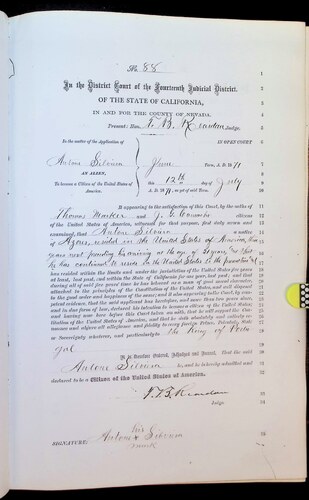 No 88
In the District Court of the Fourteenth Judicial District,
OF THE STATE OF CALIFORNIA,
IN AND FOR THE COUNTY OF NEVADA.
Present: Hon. T. B. Reardon Judge.
In the matter of the Application of
IN OPEN COURT
Antone Silveira
June Term, A. D. 1871
AN ALIEN,
To become a Citizen of the United States of America.
this 12th day of July
A. D. 1871, as yet of said Term.
It appearing to the satisfaction of this Court, by the oaths of
Thomas Marker and J. G. Coombs citizens
of the United States of America, witnesses for that purpose, first duly sworn and
examined, that Antone Silveira a native
of Azores, resided in the United States of America, three
years next preceding his arriving at the age of 21 years, & that
he has continued to reside in the United States to the present time
has resided within the limits and under the jurisdiction of the United States five years
at least, last past, and within the State of California for one year, last past; and that
during all of said five years' time he has behaved as a man of good moral character,
attached to the principles of the Constitution of the United States, and well disposed
to the good order and happiness of the same; and it also appearing to the Court, by com-
petent evidence, that the said applicant has heretofore, and more than two years since,
and in due form of law, declared his intention to become a citizen of the United States;
and having now here before this Court, taken an oath, that he will support the Con-
stitution of the United States of America, and that he doth absolutely and entirely re-
nounce and abjure all allegiance and fidelity to every foreign Prince, Potentate, State
or Sovereignty whatever, and particularly to the King of Portu
gal.
It is therefore Ordered, Adjudged and Decreed, that the said
Antone Silveira be, and he is hereby admitted and
declared to be a Citizen of the United States of America.
T. B. Reardon
Judge.
his
SIGNATURE: Antone x Silveira
mark